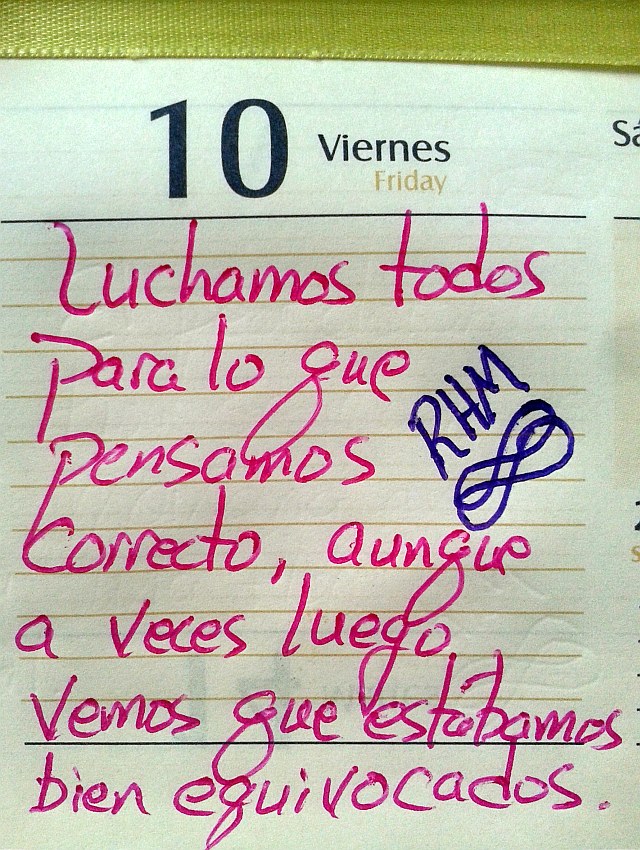 10 Viernes
Friday
Sá
Luchamos todos
para lo que
RHM
pensamos
correcto, aunque
a veces luego
vemos que estábamos
bien equivocados.